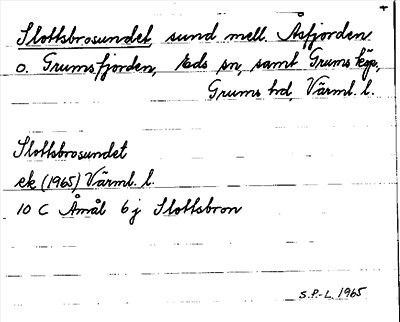 Slottsbrosundet, sund mell. Åsfjorden
o. Grumsfjorden, Eds sn, samt Grums köp,
Grums hd, Värml. l.
Slottsbrosundet
ek (1965) Värml. l.
10 C Åmål 6 j Slottsbron
S.P.-L. 1965